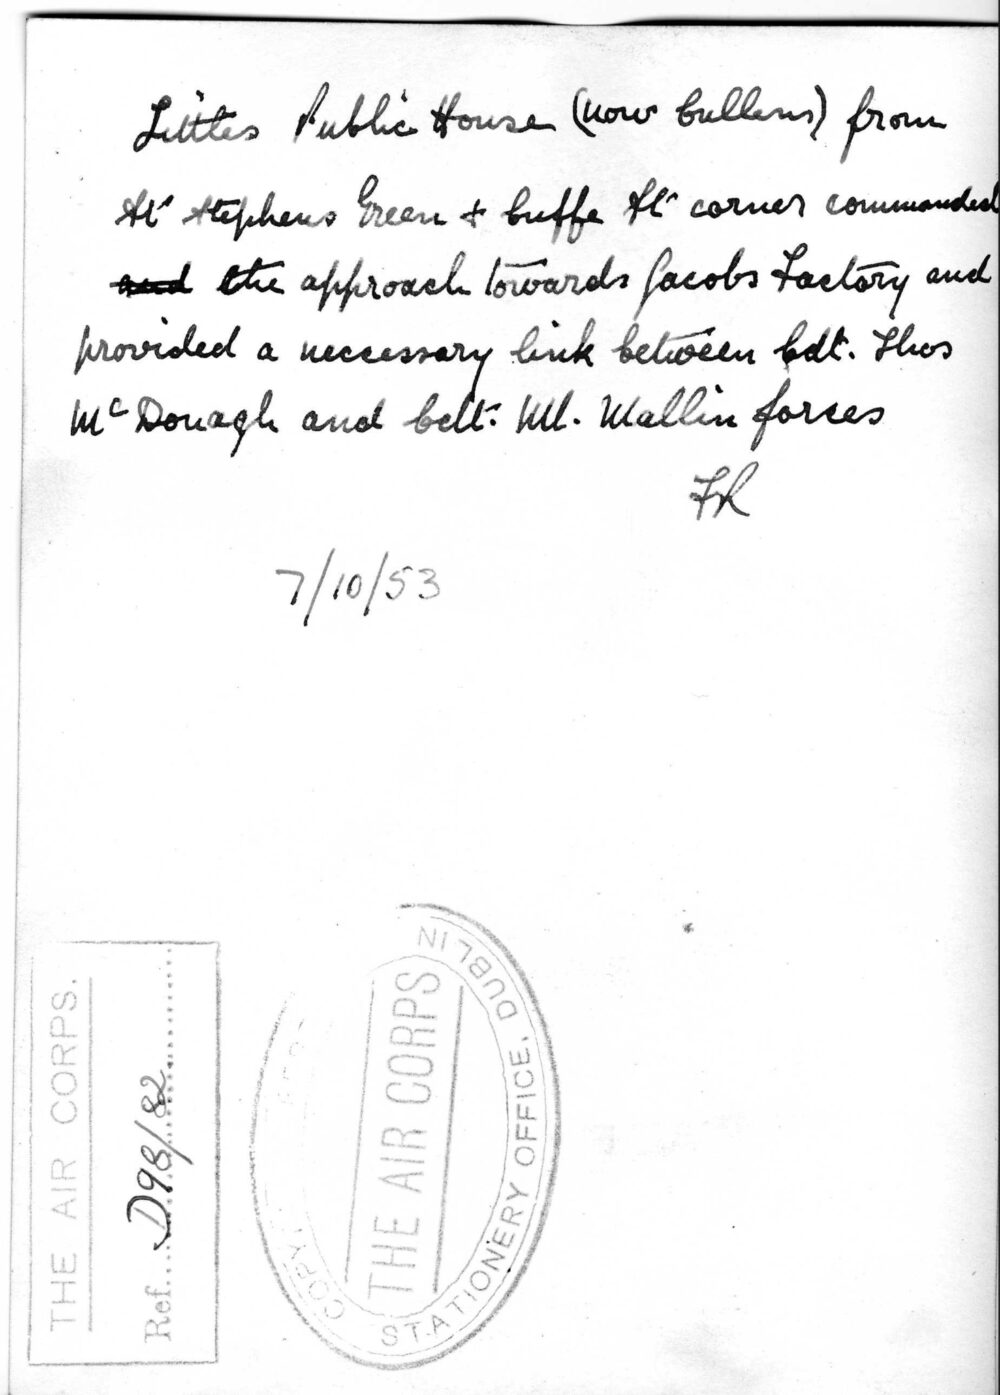 Littles Public House (now bullens) from
St Stephens Green + Cuffe St corner commanded
and the approach towards Jacobs Factory and
provided a neccessary link between bdt. Thos
McDonagh and Cdt. Ml. Mallin forces
FR
7/10/53
THE AIR CORPS.
Ref.... D98/82
COPYRIGHT
THE AIR CORPS
STATIONERY OFFICE, DUBLIN